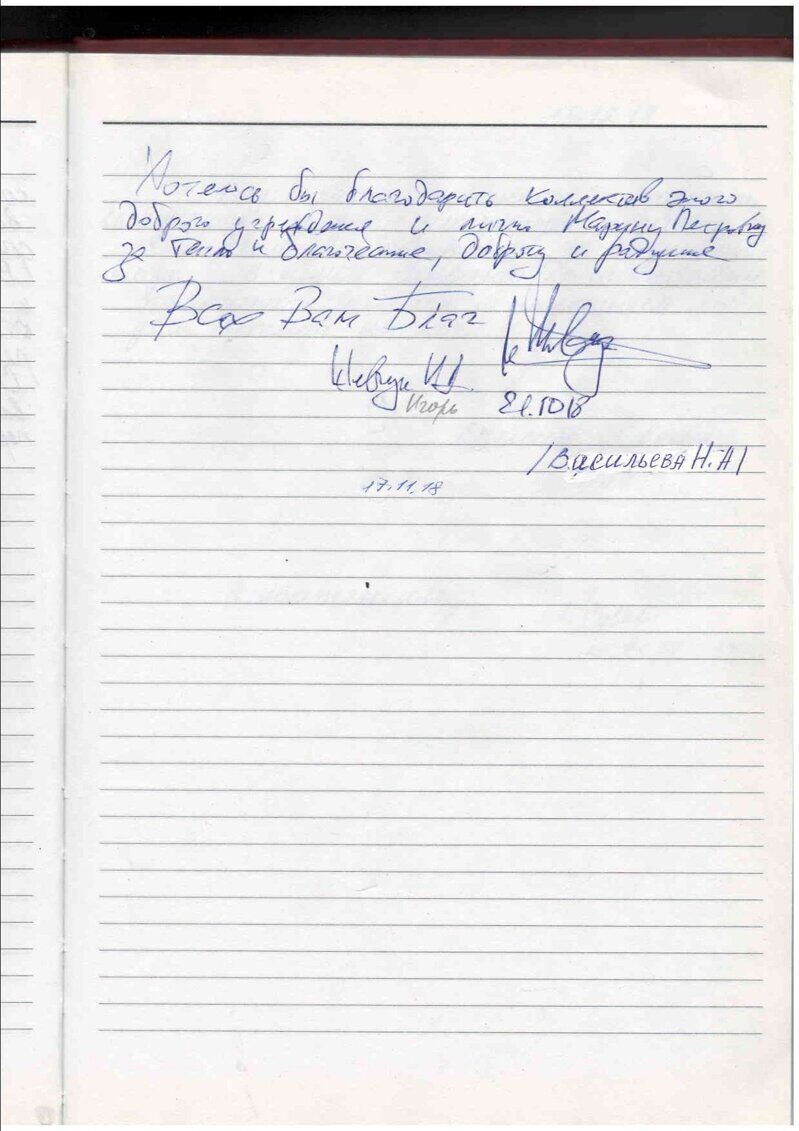 Хотелось бы благодарить коллектив этого
доброго учреждения и лично Марину Петровну
за тепло и благочестие, доброту и радушие
Всех Вам Благ
Шевчук И.А.
Игорь
/Васильева Н.А/
17.11.18